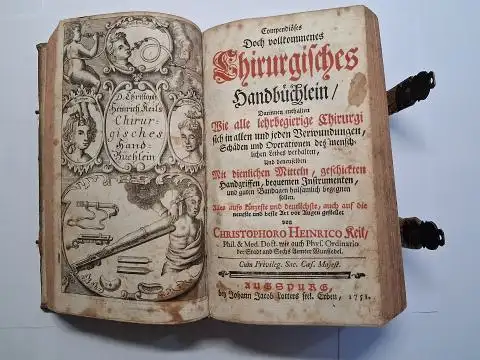 D. Christoph
Heinrich Keils
Chirur-
gisches
Hand-
Büchlein
Compendiöses
Doch vollkommenes
Chirurgisches
Handbüchlein/
Darinnen enthalten
Wie alle lehrbegierige Chirurgi
sich in allen und jeden Verwundungen,
Schäden und Operationen des mensch-
lichen Leibes verhalten,
Und denenselben
Mit dienlichen Mitteln, geschickten
Handgriffen, bequemen Instrumenten,
und guten Bandagen heilsamlich begegnen
sollen.
Alles aufs kürzeste und deutlichste, auch auf die
neueste und beste Art vor Augen gestellet
von
CHRISTOPHORO HEINRICO Keil/
Phil. & Med. Doct. wie auch Phys. Ordinario
der Stadt und Sechs Aemter Wunsiedel.
Cum Privileg. Sac. Cæs. Majest.
AUGSPURG,
bey Johann Jacob Lotters seel. Erben, 1751.